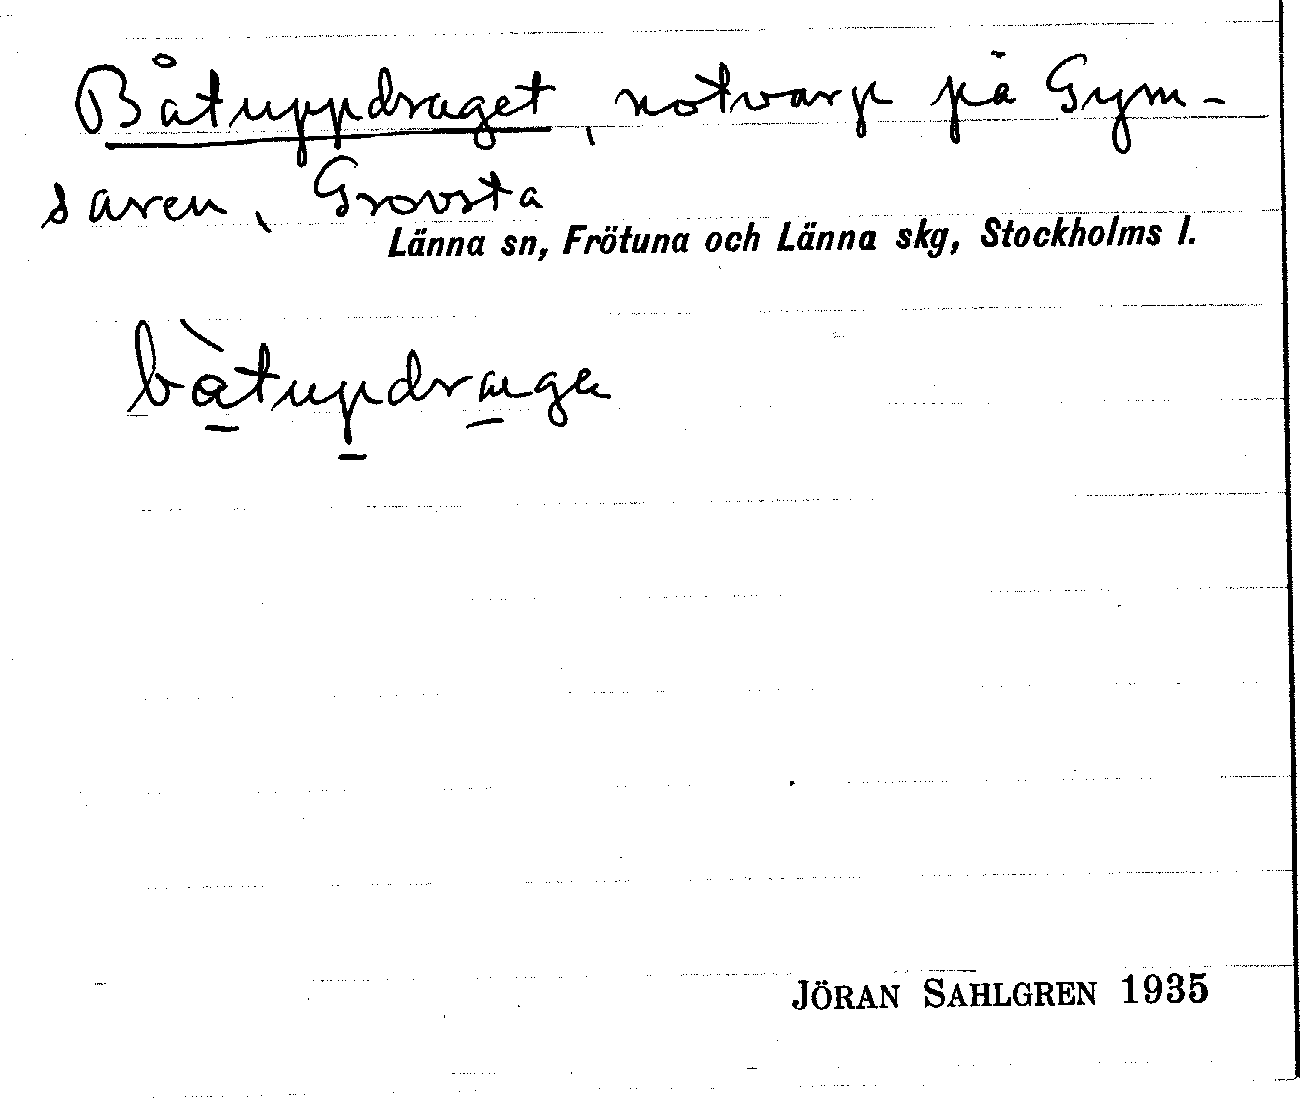 Båtuppdraget, notvarp på Gym-
saren, Grovsta
Länna sn, Frötuna och Länna skg, Stockholms l.
bàtupdraga
JÖRAN SAHLGREN 1935